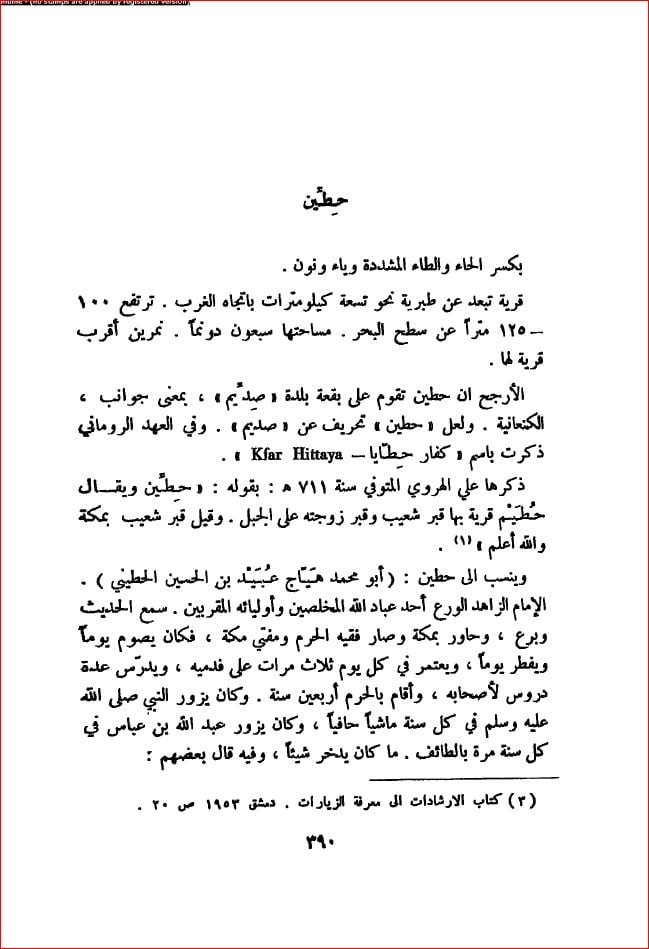 mbine - (no stamps are applied by registered version)
حِطِّين
بكسر الحاء والطاء المشددة وياء ونون .
قرية تبعد عن طبرية نحو تسعة كيلومترات باتجاه الغرب . ترتفع ١٠٠
– ١٢٥ متراً عن سطح البحر . مساحتها سبعون دونماً . نمرين أقرب
قرية لها .
الأرجح ان حطين تقوم على بقعة بلدة « صِدِّيم » ، بمعنى جوانب ،
الكنعانية . ولعل « حطين » تحريف عن « صديم » . وفي العهد الروماني
ذكرت باسم « كفار حِطّايا – Kfar Hittaya » .
ذكرها علي الهروي المتوفي سنة ٧١١ ه : بقوله : « حِطِّين ويقال
حُطَيْم قرية بها قبر شعيب وقبر زوجته على الجبل . وقيل قبر شعيب بمكة
والله أعلم » (١) .
وينسب الى حطين : ( أبو محمد هَيّاج عُبَيْد بن الحسين الحطيني ) .
الإمام الزاهد الورع أحد عباد الله المخلصين وأوليائه المقربين . سمع الحديث
وبرع ، وحاور بمكة وصار فقيه الحرم ومفتي مكة ، فكان يصوم يوماً
ويفطر يوماً ، ويعتمر في كل يوم ثلاث مرات على قدميه ، ويدرّس عدة
دروس لأصحابه ، وأقام بالحرم أربعين سنة . وكان يزور النبي صلى الله
عليه وسلم في كل سنة ماشياً حافياً ، وكان يزور عبد الله بن عباس في
كل سنة مرة بالطائف . ما كان يدخر شيئاً ، وفيه قال بعضهم :
( ٣ ) كتاب الارشادات الى معرفة الزيارات . دمشق ١٩٥٣ ص ٢٠ .
٣٩٠